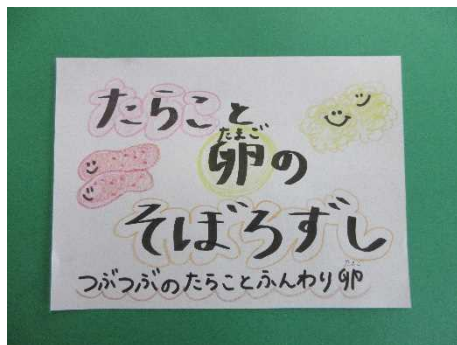 たらこと
たまご
卵の
そぼろずし
たまご
つぶつぶのたらことふんわり卵